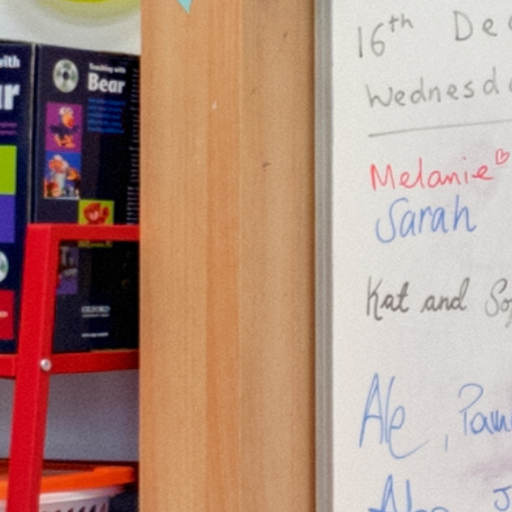 with
Teaching with
Bear
OXFORD
16th Dec
Wednesd
Melanie
Sarah
Kat and So
Ale,